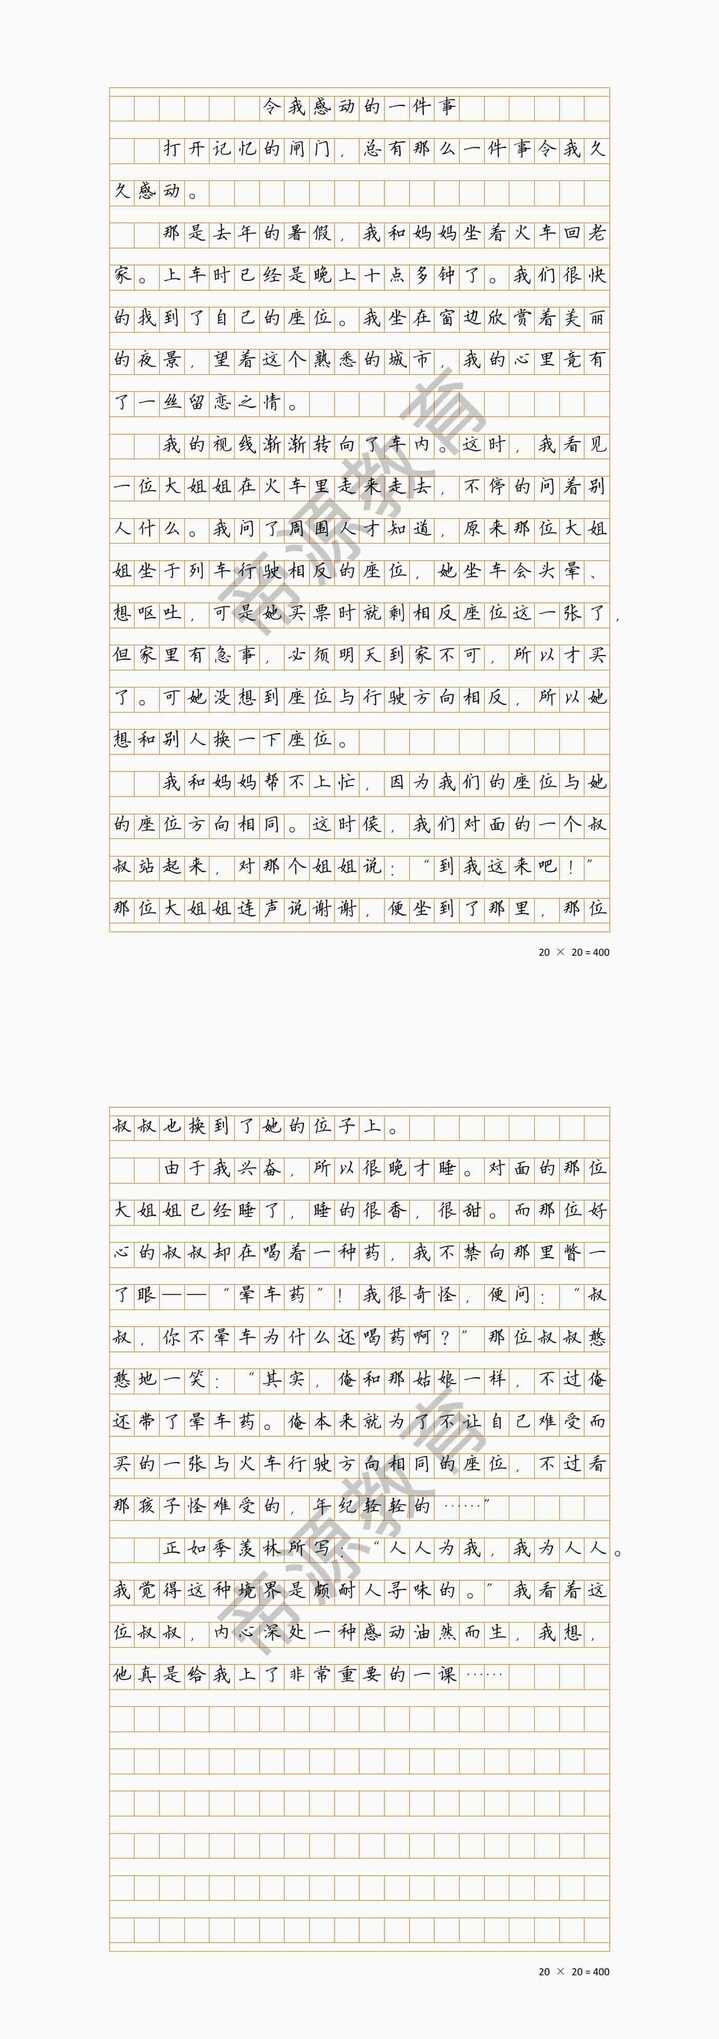 令我感动的一件事
打开记忆的闸门，总有那么一件事令我久
久感动。
那是去年的暑假，我和妈妈坐着火车回老
家。上车时已经是晚上十点多钟了。我们很快
的找到了自己的座位。我坐在窗边欣赏着美丽
的夜景，望着这个熟悉的城市，我的心里竟有
了一丝留恋之情。
我的视线渐渐转向了车内。这时，我看见
一位大姐姐在火车里走来走去，不停的问着别
人什么。我问了周围人才知道，原来那位大姐
姐坐于列车行驶相反的座位，她坐车会头晕、
想呕吐，可是她买票时就剩相反座位这一张了，
但家里有急事，必须明天到家不可，所以才买
了。可她没想到座位与行驶方向相反，所以她
想和别人换一下座位。
我和妈妈帮不上忙，因为我们的座位与她
的座位方向相同。这时侯，我们对面的一个叔
叔站起来，对那个姐姐说：“到我这来吧！”
那位大姐姐连声说谢谢，便坐到了那里，那位
20 × 20 = 400
叔叔也换到了她的位子上。
由于我兴奋，所以很晚才睡。对面的那位
大姐姐已经睡了，睡的很香，很甜。而那位好
心的叔叔却在喝着一种药，我不禁向那里瞥一
了眼——“晕车药”！我很奇怪，便问：“叔
叔，你不晕车为什么还喝药啊？”那位叔叔憨
憨地一笑：“其实，俺和那姑娘一样，不过俺
还带了晕车药。俺本来就为了不让自己难受而
买的一张与火车行驶方向相同的座位，不过看
那孩子怪难受的，年纪轻轻的……”
正如季羡林所写：“人人为我，我为人人。
我觉得这种境界是颇耐人寻味的。”我看着这
位叔叔，内心深处一种感动油然而生，我想，
他真是给我上了非常重要的一课……
20 × 20 = 400
帝源教育
帝源教育